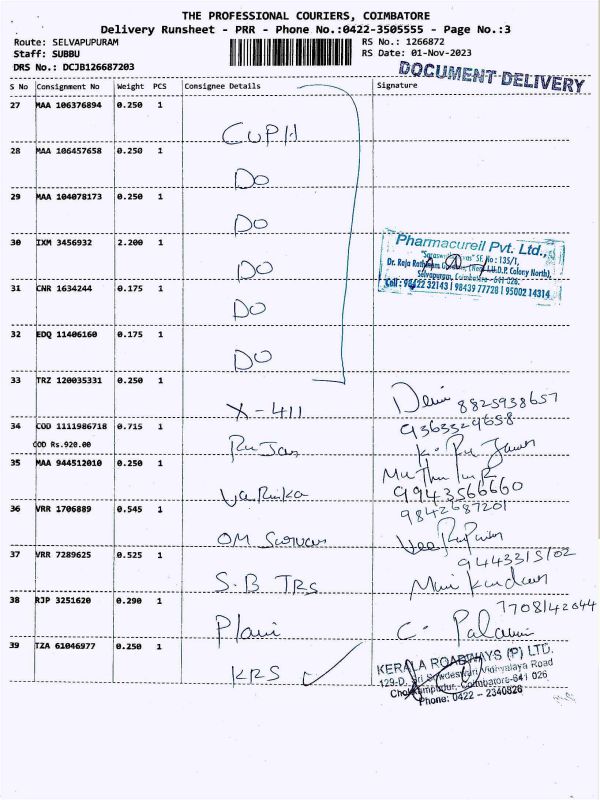 THE PROFESSIONAL COURIERS, COIMBATORE
Delivery Runsheet - PRR - Phone No.:0422-3505555 - Page No.:3
Route: SELVAPUPURAM RS No.: 1266872
Staff: SUBBU RS Date: 01-Nov-2023
DRS No.: DCJB126687203
DOCUMENT DELIVERY
S No Consignment No Weight PCS Consignee Details Signature
27 MAA 106376894 0.250 1
CUPH
28 MAA 106457658 0.250 1
DO
29 MAA 104078173 0.250 1
DO
30 IXM 3456932 2.200 1
DO
Pharmacureil Pvt. Ltd.,
SF. No : 135/1,
Dr. Raja (Near T.U.D.P. Colony North),
Selvapuram, Coimbatore - 641 026.
Cell : 98422 32143 | 98439 77728 | 95002 14314
31 CNR 1634244 0.175 1
DO
32 EDQ 11406160 0.175 1
DO
33 TRZ 120035331 0.250 1
X-411 8825938657
34 COD 1111986718 0.715 1
9363329658
COD Rs.920.00
35 MAA 944512010 0.250 1
9943566660
36 VRR 1706889 0.545 1
9842687201
OM
37 VRR 7289625 0.525 1
9443315102
S.B TRS
38 RJP 3251620 0.290 1
7708142644
Plani C. Palani
39 TZA 61046977 0.250 1
KRS
KERALA ROADWAYS (P) LTD.
129-D, Sri Sowdeswari Vidhyalaya Road
Coimbatore-641 026
Phone: 0422 - 2340826